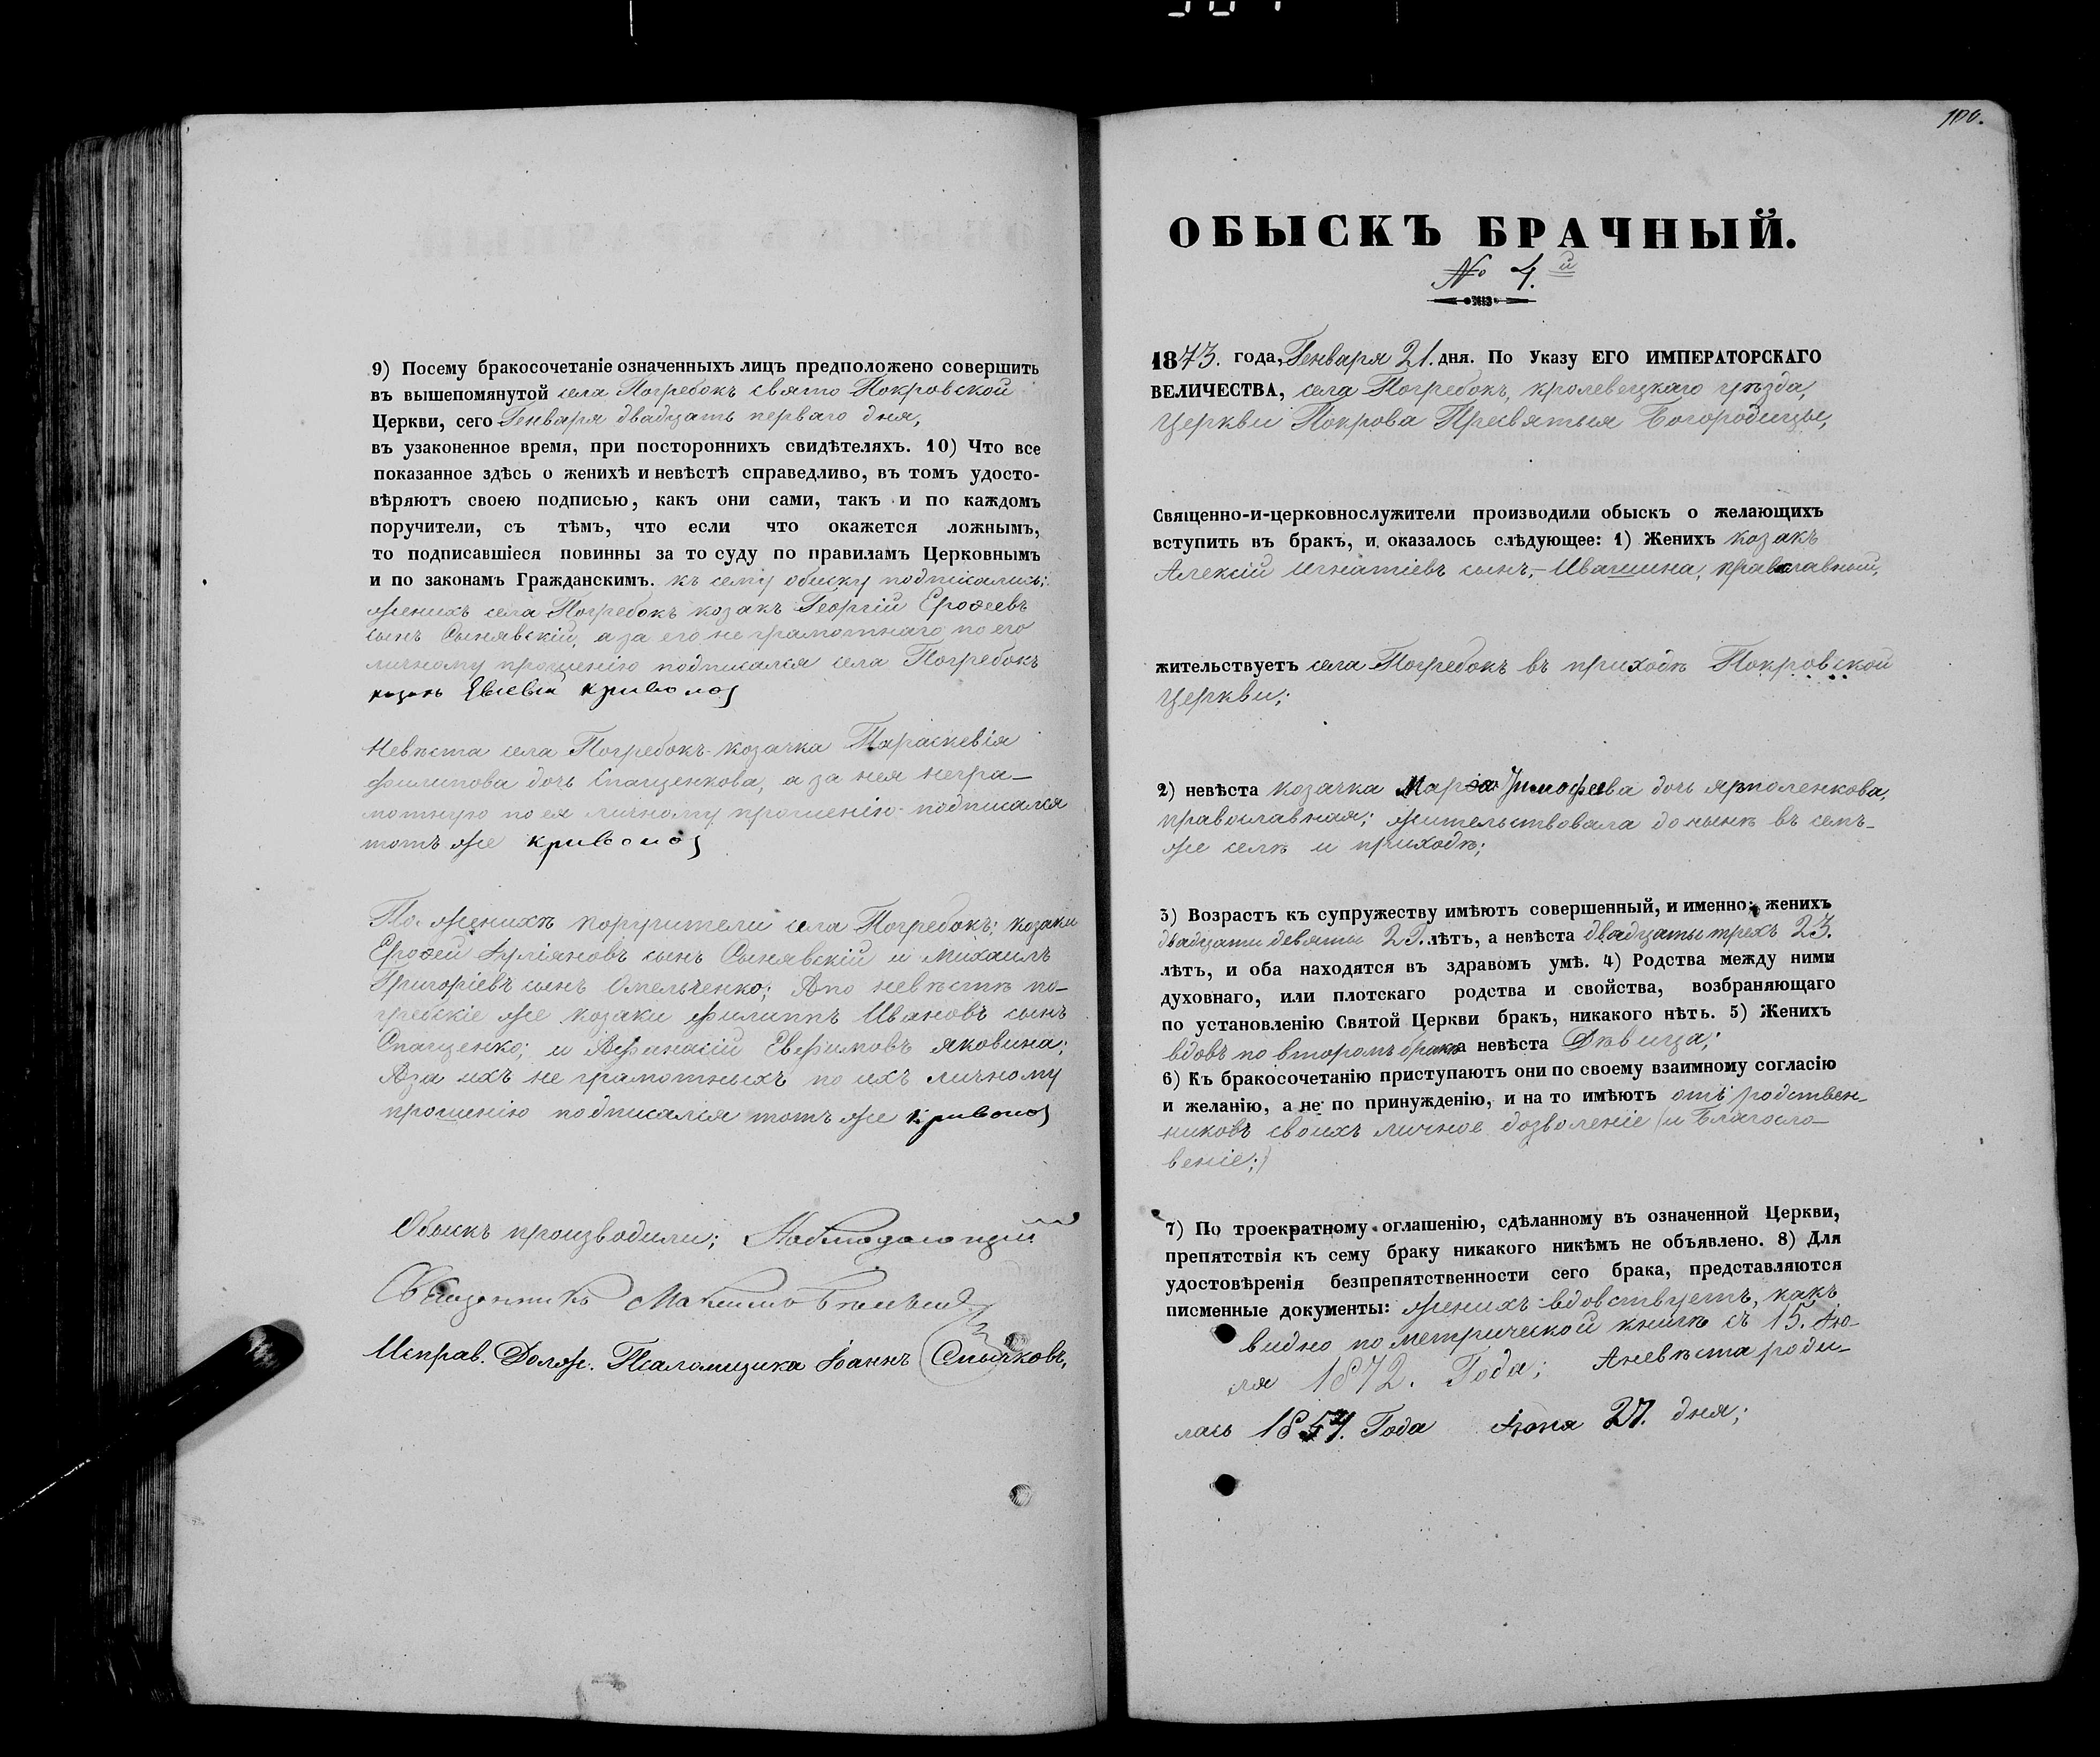 9) Посему бракосочетаніе означенныхъ лицъ предположено совершить
въ вышепомянутой села Погребокъ свято Покровской
Церкви, сего Генваря двадцать перваго дня,
въ узаконенное время, при постороннихъ свидѣтеляхъ. 10) Что все
показанное здѣсь о женихѣ и невѣстѣ справедливо, въ томъ удосто-
вѣряютъ своею подписью, какъ они сами, такъ и по каждомъ
поручители, съ тѣмъ, что если что окажется ложнымъ,
то подписавшіеся повинны за то суду по правиламъ Церковнымъ
и по законамъ Гражданскимъ. къ сему обыску подписались:
женихъ села Погребокъ козакъ Георгій Ерофеевъ
сынъ Сынявскій, а за его не грамотнаго по его
личному прошенію подписался села Погребокъ
козакъ Кривонос
Невѣста села Погребокъ козачка Параскевія
Филипова дочь Спащенкова, а за нея негра-
мотную по ея личному прошенію подписался
тотъ же Кривонос
По женихѣ поручители села Погребокъ: козаки
Ерофей сынъ Сынявскій и Михаилъ
Григоріевъ сынъ Омельченко; А по невѣстѣ по-
гребскіе же козаки Филиппъ Ивановъ сынъ
Спащенко; и Афанасій Евфимовъ Яковина;
А за ихъ не грамотныхъ по ихъ личному
прошенію подписался тотъ же Кривонос
Обыскъ производили; Наблюдающій
Священникъ Максимъ
Исправ. Долж. Псаломщика Іоаннъ Спычковъ,
100.
ОБЫСКЪ БРАЧНЫЙ.
№ 4.й
1873. года, Генваря 21. дня. По Указу ЕГО ИМПЕРАТОРСКАГО
ВЕЛИЧЕСТВА, села Погребокъ, кролевецкаго уѣзда,
Церкви Покрова Пресвятыя Богородицы,
Священно-и-церковнослужители производили обыскъ о желающихъ
вступить въ бракъ, и оказалось слѣдующее: 1) Женихъ козакъ
Алексій Игнатіевъ сынъ,- Ивашина, православный,
жительствуетъ села Погребокъ въ приходѣ Покровской
Церкви;
2) невѣста козачка Марія Тимофеева дочь Ярмоленкова,
православная; жительствовала до нынѣ въ семъ-
же селѣ и приходѣ;
3) Возрастъ къ супружеству имѣютъ совершенный, и именно: женихъ
двадцати девяти 29. лѣтъ, а невѣста двадцаты трехъ 23.
лѣтъ, и оба находятся въ здравомъ умѣ. 4) Родства между ними
духовнаго, или плотскаго родства и свойства, возбраняющаго
по установленію Святой Церкви бракъ, никакого нѣтъ. 5) Женихъ
вдовъ по второмъ бракѣ а невѣста Дѣвица;
6) Къ бракосочетанію приступаютъ они по своему взаимному согласію
и желанію, а не по принужденію, и на то имѣютъ отъ родствен-
никовъ своихъ личное дозволеніе (и Благосло-
веніе;)
7) По троекратному оглашенію, сдѣланному въ означенной Церкви,
препятствія къ сему браку никакого никѣмъ не объявлено. 8) Для
удостовѣренія безпрепятственности сего брака, представляются
писменные документы: женихъ вдовствуетъ, какъ
видно по метрической книгѣ съ 15. Ію-
ля 1872. Года; А невѣста роди-
лась Года Іюня 27. дня;